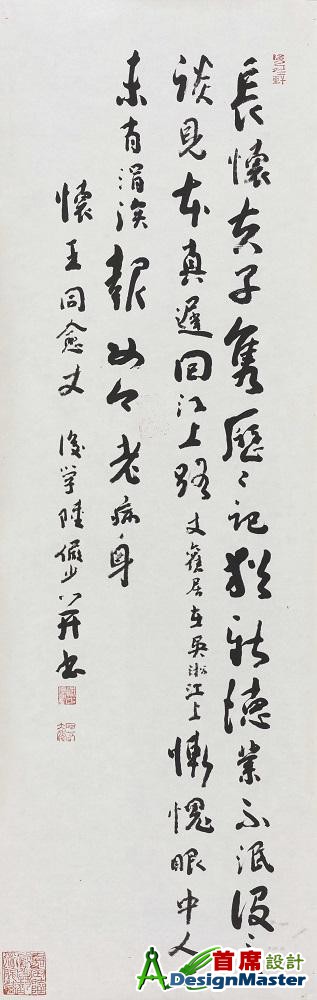 長懷夫子雋歷〻記猶新德業不泯沒言
談見本真遲回江上路丈舊居在吳淞江上慚愧眼中人
未有涓埃報如今老病身
懷王同愈丈 後學陸儼少并書
首席設計
DesignMaster